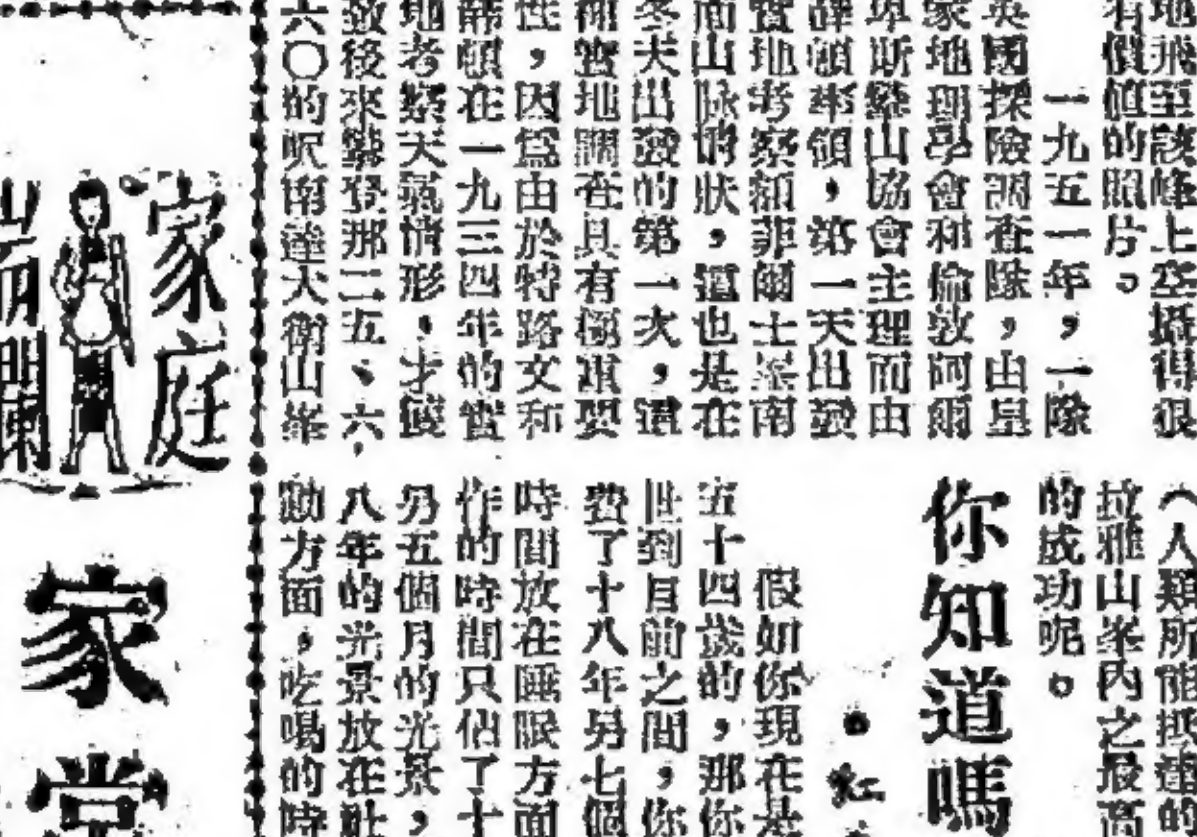 地飛至該峰上空攝得很
有價值的照片。
一九五一年，一隊
英國探險調查隊，由皇
家地理學會和倫敦阿爾
卑斯攀山協會主理而由
薛頓率領，第一天出發
實地考察額菲爾士峯南
面山脉情狀，這也是在
冬天出發的第一次，這
種實地調查具有極重要
性，因爲由於特路文和
薛頓在一九三四年的實
地考察天氣情形，才發
致後來攀登那二五、六，
六〇的呎南達大衛山峯
（人類所能抵達的
拉雅山峯內之最高
的成功呢。
你知道嗎
虹
假如你現在是
五十四歲的，那你
世到目前之間，你
費了十八年另七個
時間放在睡眠方面
作的時間只佔了十
另五個月的光景，
八年的光景放在肚
動方面，吃喝的時
家庭
家常